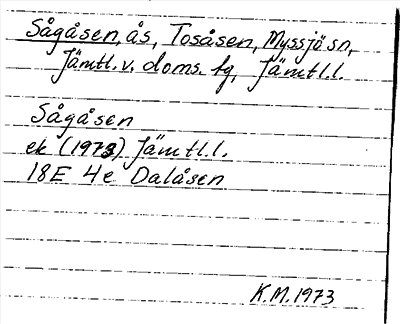 Sågåsen, ås, Tosåsen, Myssjö sn,
Jämtl. v. doms. fg, Jämtl.l.
Sågåsen
ek (1973) Jämtl.l.
18E 4e Dalåsen
K.M. 1973